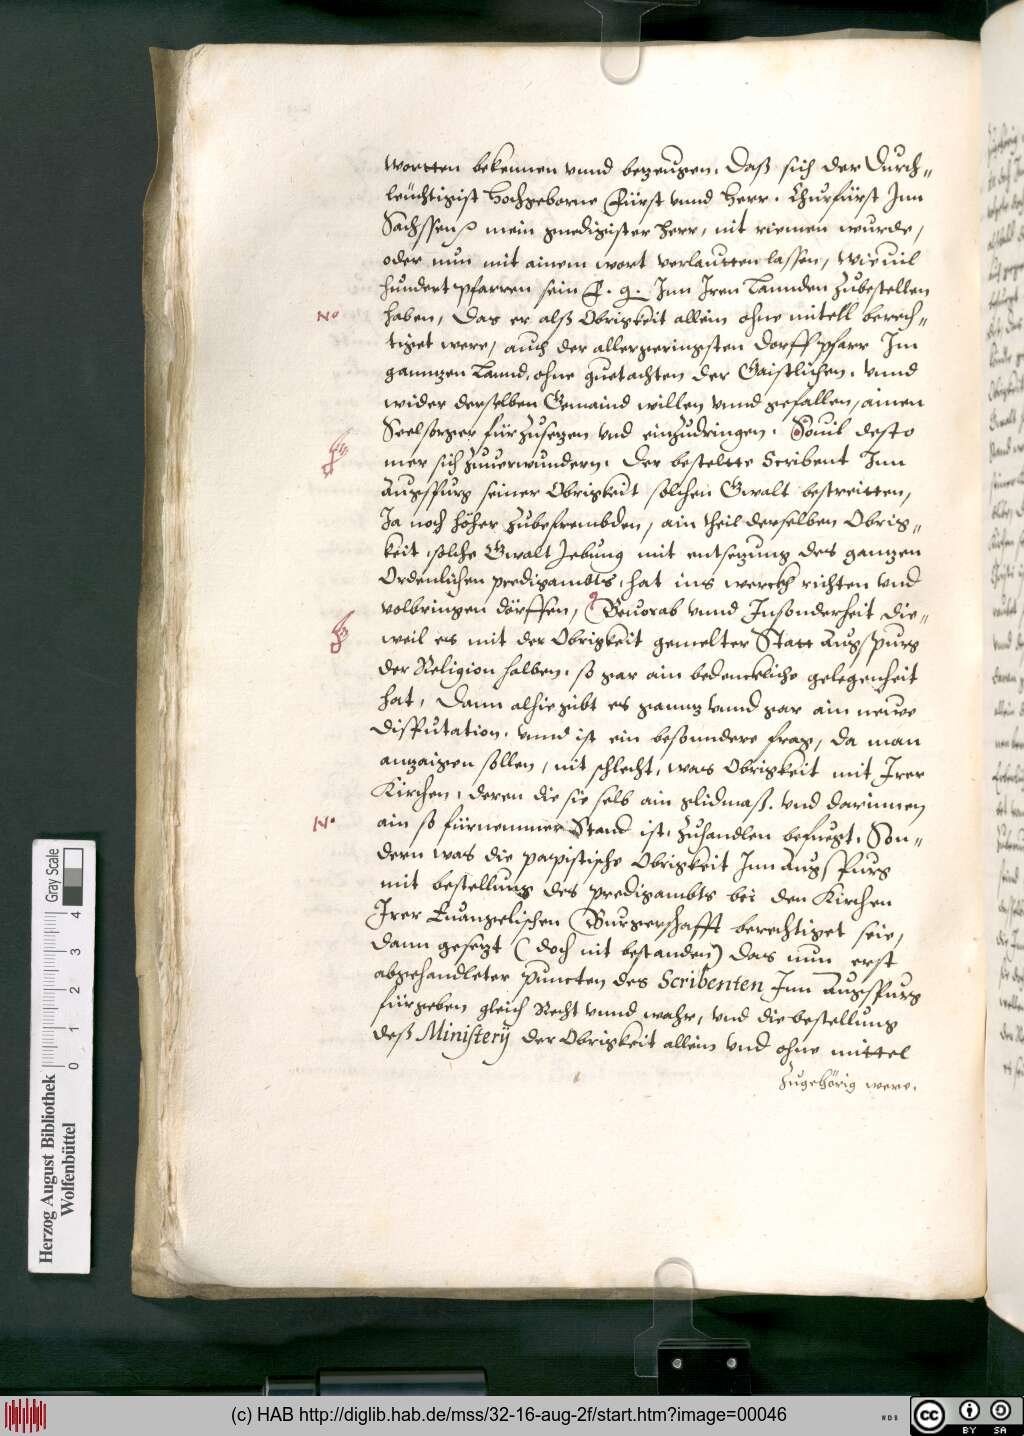 wortten bekennen vnnd bezeugen. Daß sich der Durch-
leüchtigist Hochgeborne Fürst vnnd Herr. Churfürst Inn
Sachssen mein gnedigister Herr, nit riemen wurde,
oder nun mit ainem wort verlautten lassen, wieuil
hundert pfarren sein F. g. Inn Iren Lannden Zubestellen
No haben, Das er alß Obrigkeit allein ohne mitell berech-
tiget were, auch der allergeringsten dorff pfarr Im
ganntzen Lannd, ohne guetachten der Gaistlichen. vnnd
wider derselben Gemaind willen vnnd gefallen, ainen
Seelsorger für Zusetzen vnd einzudringen. Souil desto
mer sich Zuuerwundern. Der bestelte Scribent Inn
Augspurg seiner Obrigkeit solchen Gwalt bestreitten,
Ja noch höher Zubefrembden, ain theil derselben Obrig-
keit, solche Gwalt Iebung mit entsetzung des gantzen
Ordenlichen predigambts, hat ins werckh richten vnd
volbringen dörffen, Beuorab vnnd Insonderheit die-
weil es mit der Obrigkeit gemelter Statt Augspurg
der Religion halben, so gar ain bedenckliche gelegenheit
hat, Dann alhie gibt es ganntz vnnd gar ain neuve
Disputation. vnnd ist ein besonndere frag, da man
anzaigen sollen, nit schlecht, was Obrigkeit mit Irer
Kirchen, deren die sie selb ain glidmaß. vnd darinnen
No ain so fürnemmer Stand ist, Zuhandlen befuegt. Son-
dern was die papistische Obrigkeit Inn Augspurg
mit bestellung des predigambts bei den Kirchen
Irer Euangelischen Burgerschafft berechtiget seie,
Dann gesetzt (doch nit bestanden) das nun erst
abgehandleter puncten des Scribenten Inn Augspurg
fürgeben gleich Recht vnnd wahr, vnd die bestellung
deß Ministerÿ der Obrigkeit allein vnd ohne mittel
Zugehörig were.
Herzog August Bibliothek
Wolfenbüttel
Gray Scale
0 1 2 3 4
(c) HAB http://diglib.hab.de/mss/32-16-aug-2f/start.htm?image=00046
WDB
cc BY SA